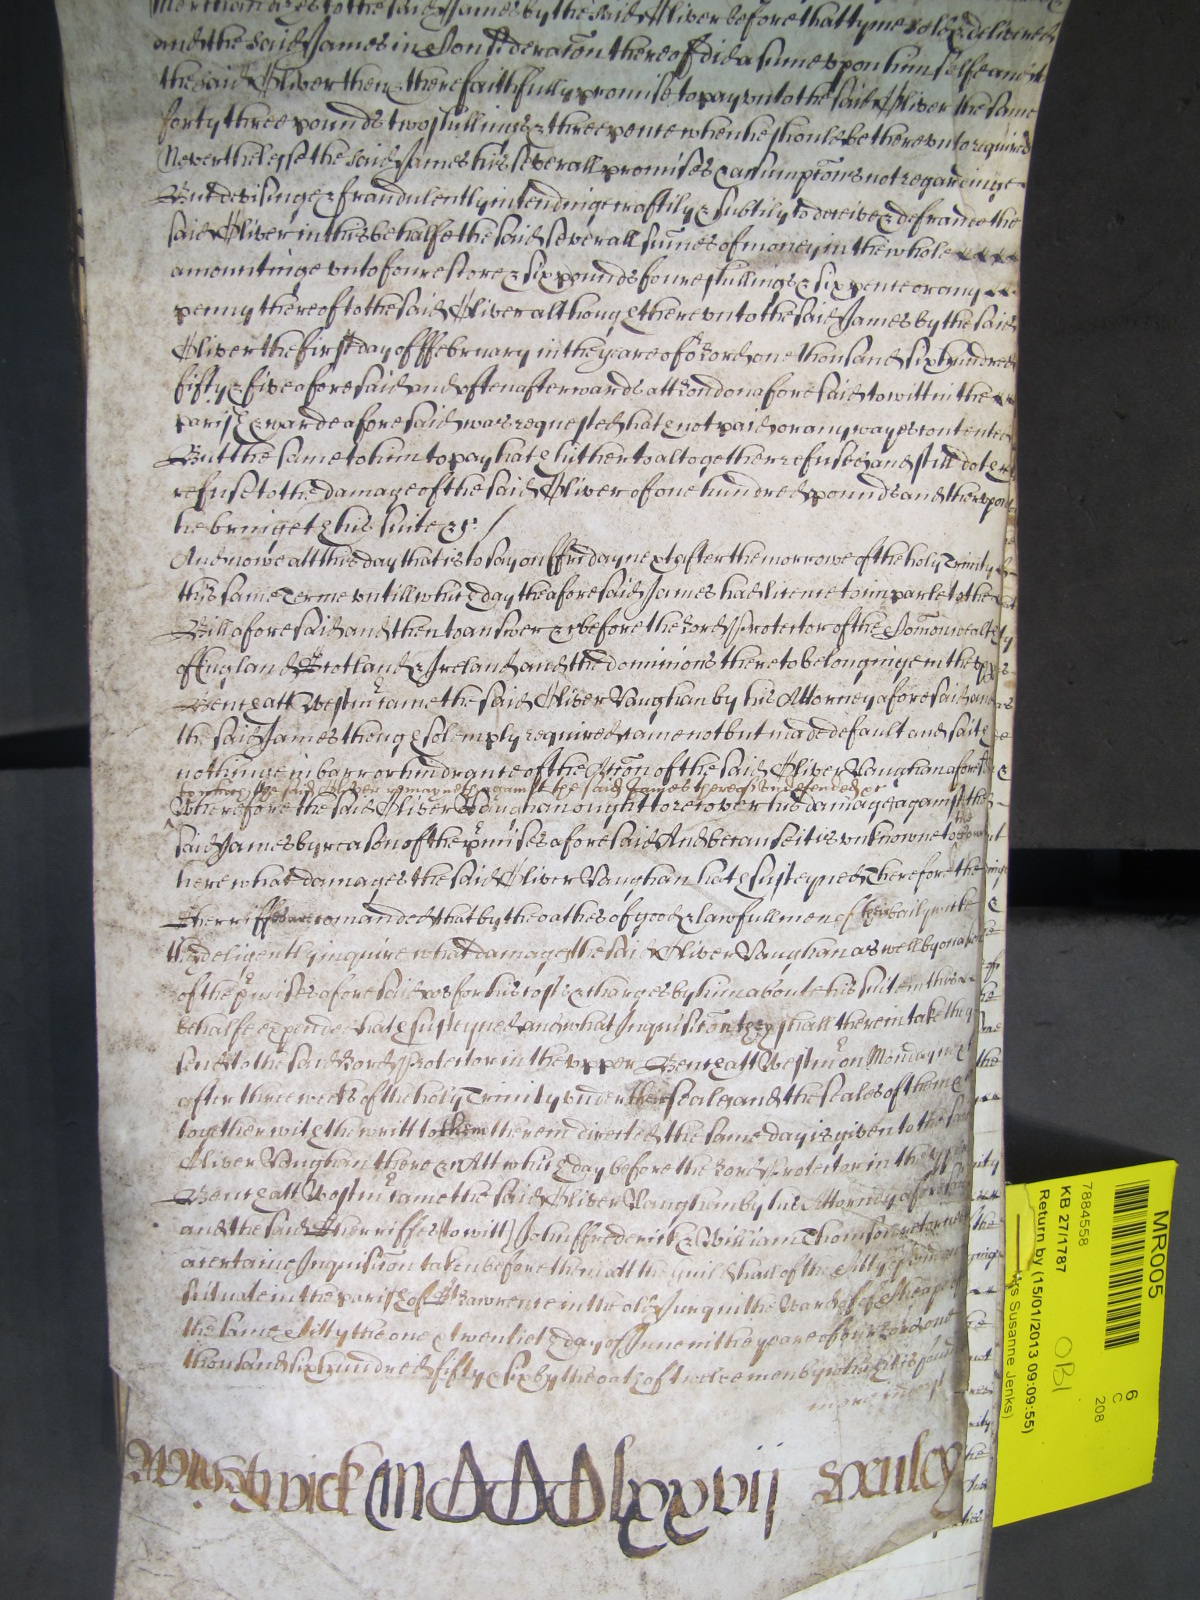 Merchandizes to the said James by the said Oliver before that tyme sold & delivered
and the said James in Consideracon thereof did assume upon himselfe and to
the said Oliver then & there faithfully promise to pay unto the said Oliver the same
forty three pounds two shillings & three pence when he should be thereunto required
Neverthelesse the said James his severall promises & assumptions not regardinge
But devisinge & fraudulently intendinge craftily & subtily to deceive & defraude the
said Oliver in this behalfe the said severall summes of money in the whole
amountinge unto foure score & six pounds foure shillings & six pence or any
penny thereof to the said Oliver although thereunto the said James by the said
Oliver the first day of ffebruary in the yeare of or Lord one thousand six hundred
fifty & five aforesaid and often afterwards att London aforesaid to witt in the
parish & warde aforesaid was requested hath not paid or any wayes contented
But the same to him to pay hath hitherto altogether refused and still doth
refuse to the damage of the said Oliver of one hundred pounds and thereupon
he bringeth his suite &c
And nowe att this day that is to say on ffriday next after the morrowe of the holy Trinity
this same Terme untill which day the aforesaid James had licence to imparle to the
Bill aforesaid and then to answer &c before the Lord Protector of the Comonwealth
of England Scotland & Ireland and the dominions thereto belonginge in the upper
Bench att Westmr came the said Oliver Vaughan by his Attorney aforesaid and
the said James though solemply required came not but made default and saith
nothinge in barr or hindrance of the Accon of the said Oliver Vaughan aforesaid
the said Oliver remayneth against the said James thereof undefended &c
Wherefore the said Oliver Vaughan ought to recover his damage against the
said James by reason of the pmisses aforesaid And because it is unknowne to the Court
here what damages the said Oliver Vaughan hath susteyned Therefore the
Sherriffs are comanded that by the oathes of good & lawfull men of their bailywicke
they deligently inquire what damage the said Oliver Vaughan as well by occasion
of the pmisses aforesaid as for his costs & charges by him aboute his suit in this
behalfe expended hath susteyned and what Inquisicon they shall therein take they
send to the said Lord Protector in the upper Bench att Westmr on Monday next
after three weeks of the holy Trinity under their seale and the seales of them &c
together with the writt to them therein directed the same day is given to the said
Oliver Vaughan there &c Att which day before the Lord Protector in the upper
Bench att Westmr came the said Oliver Vaughan by his Attorney aforesaid
and the said Sherriffes (to witt) John ffrederick & William Thomson returned
a certaine Inquisition taken before them att the guildhall of the Citty of London
situate in the parish of St Lawrence in the old Jury in the Ward of Cheape of
the same Citty the one & twentieth day of June in the yeare of our Lord one
thousand six hundred fifty & six by the oath of twelve men by which it is found
Wightwick MDDDlxxvij
MR005
6
C
208
7884558
KB 27/1787
Return by (15/01/2013 09:09:55)
Mrs Susanne Jenks)
OBI